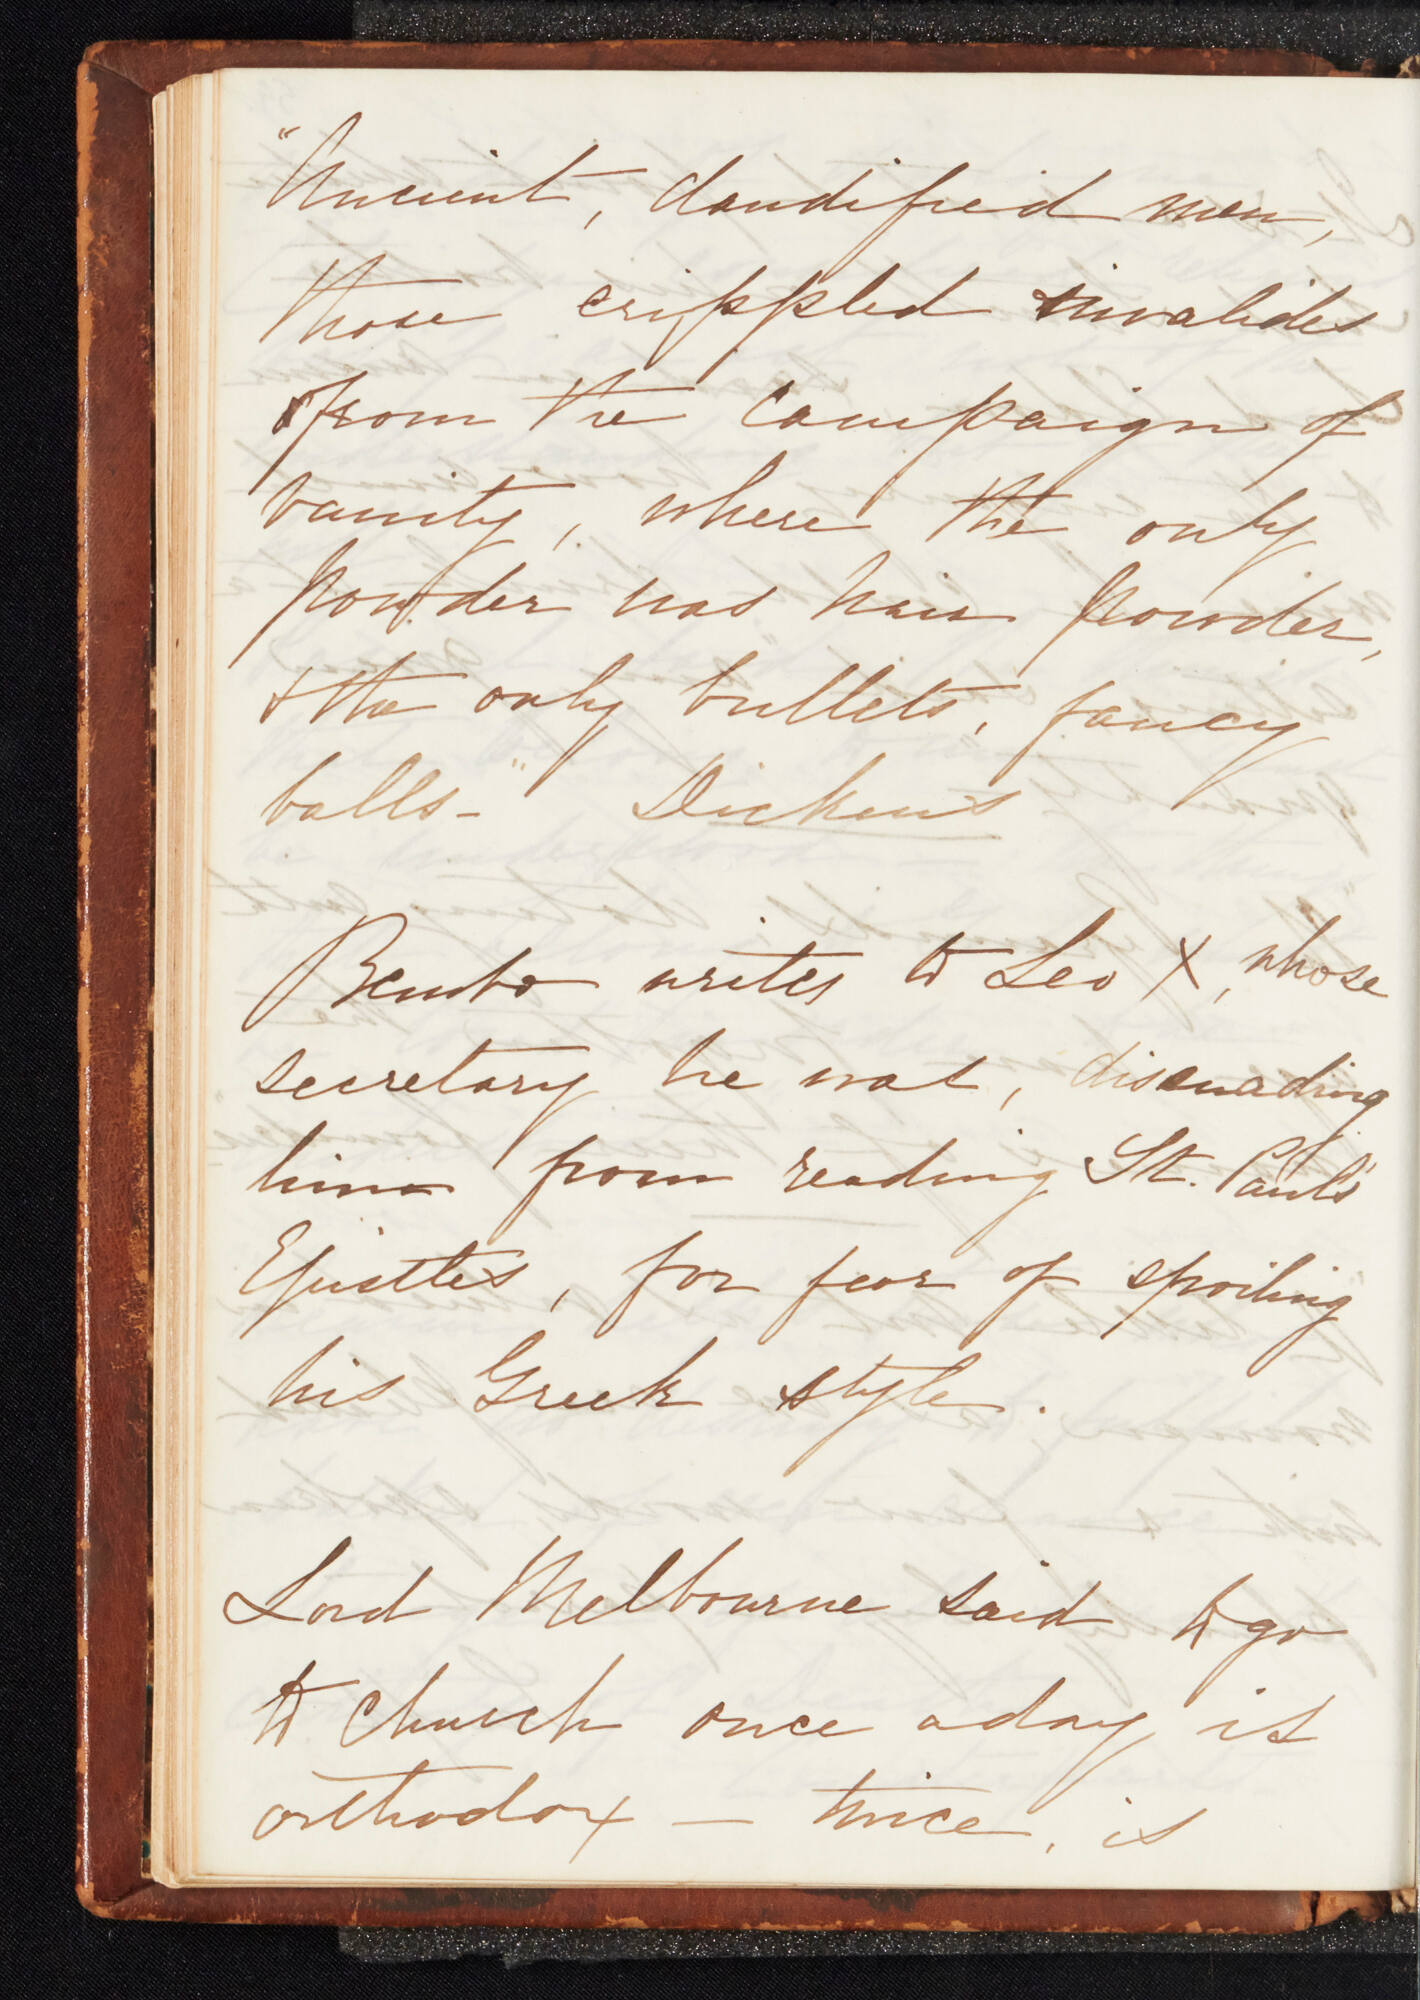 "Ancient, dandified men,
those crippled invalides
from the campaign of
vanity, where the only
powder was hair powder,
& the only bullets, fancy
balls-" Dickens
Bembo writes to Leo X, whose
secretary he was, dissuading
him from reading St. Paul's
Epistles, for fear of spoiling
his Greek style.
Lord Melbourne said to go
to church once a day is
orthodox — twice, is